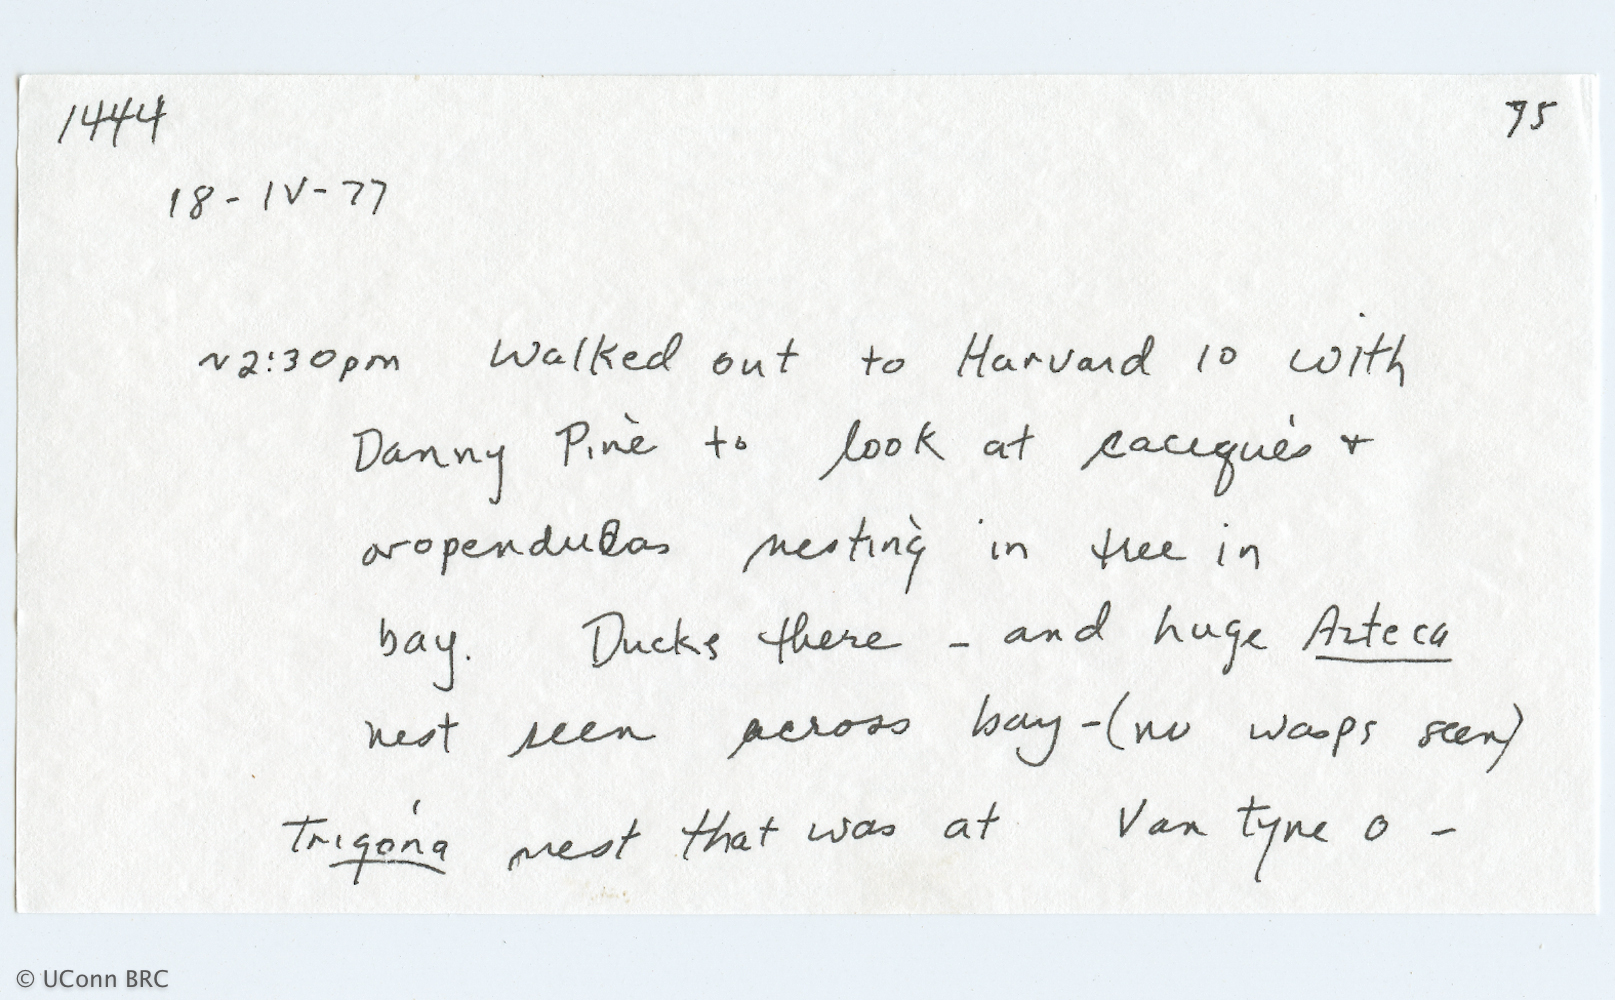 1444
75
18-IV-77
~2:30pm Walked out to Harvard 10 with
Danny Pine to look at caciques +
oropendulas nesting in tree in
bay. Ducks there - and huge Azteca
nest seen across bay - (no wasps seen)
Trigona nest that was at Van Tyne 0 -
© UConn BRC